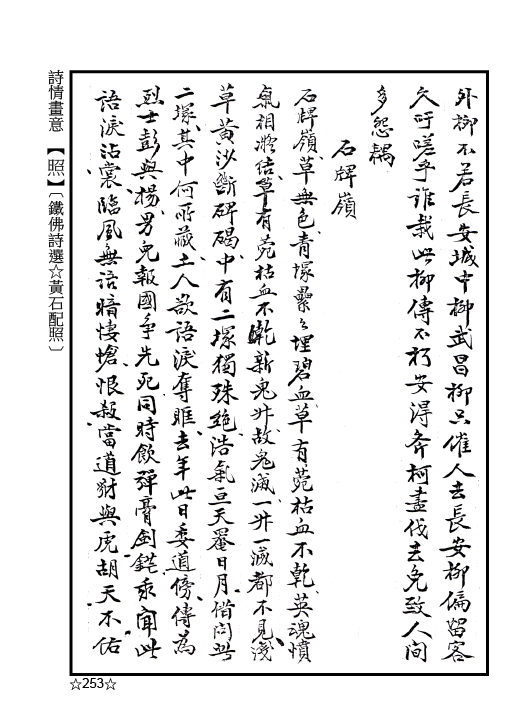 外柳不若長安城中柳武昌柳只催人去長安柳偏留客
久吁嗟乎誰栽此柳傳不朽安得斧柯盡伐去免致人間
多怨耦
石牌嶺
石牌嶺草無色青塚纍々埋碧血草有菀枯血不乾英魂憤
氣相凝結草有菀枯血不乾新鬼非故鬼滅一非一滅都不見淺
草黃沙斷碑碣中有二塚獨殊絕浩氣亘天翳日月借問此
二塚其中何所藏土人欲語淚奪眶去年此日委道傍傳為
烈士彭與楊男兒報國爭先死同時飲彈膏劍鋩我聞此
語淚沾裳臨風無語暗悽愴恨殺當道豺與虎胡天不佑
詩情畫意【照】〔鐵佛詩選☆黃石配照〕
☆253☆